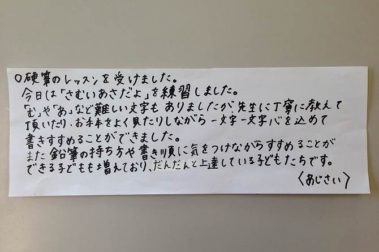 ○硬筆のレッスンを受けました。
今日は「さむいあさだよ」を練習しました。
「む」や「あ」など難しい文字もありましたが、先生に丁寧に教えて
頂いたり、お手本をよく見たりしながら一文字一文字心を込めて
書きすすめることができました。
また鉛筆の持ち方や書き順に気をつけながらすすめることが
できる子どもも増えており、だんだんと上達している子どもたちです。
〈あじさい〉